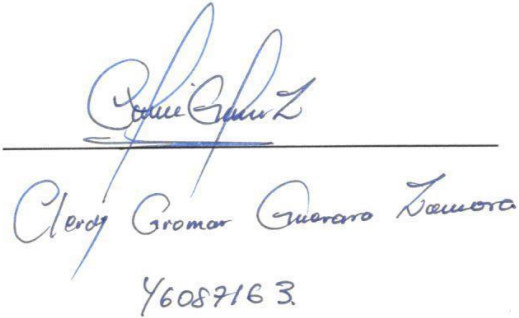 Clerdy Gromar Guararo Zamora
46087163.